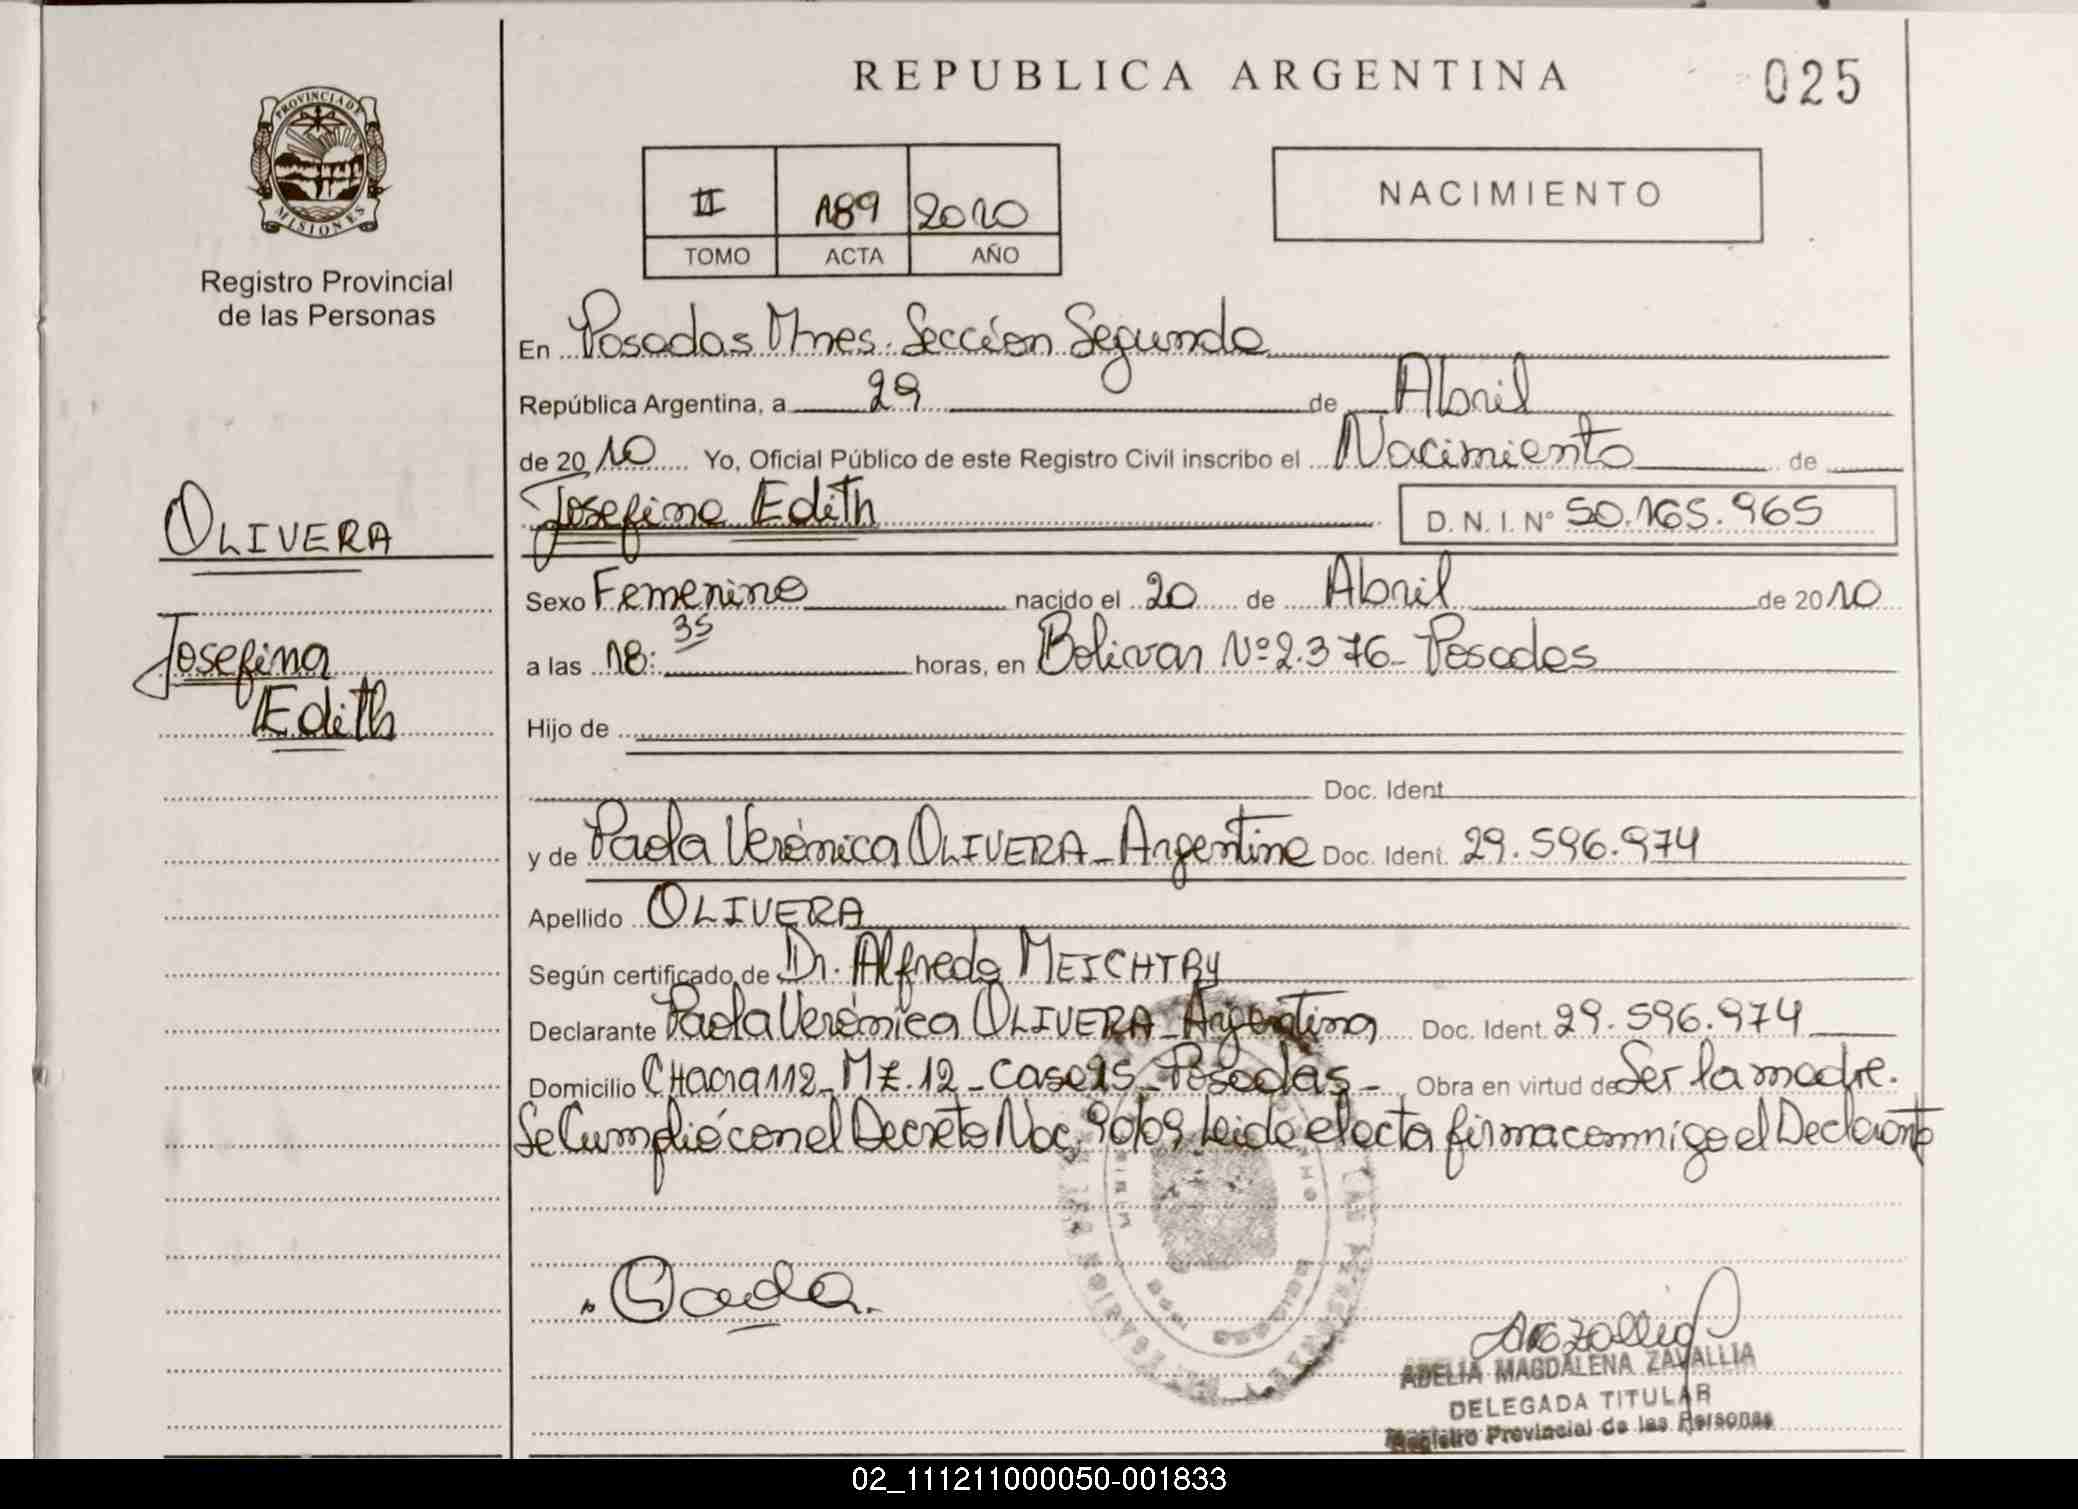 REPUBLICA ARGENTINA
025
PROVINCIA DE
MISIONES
Registro Provincial
de las Personas
II 189 2010
TOMO ACTA AÑO
NACIMIENTO
En Posadas Mnes. Sección Segunda
República Argentina, a 29 de Abril
de 2010 Yo, Oficial Público de este Registro Civil inscribo el Nacimiento de
Josefina Edith D. N. I. N° 50.165.965
OLIVERA
Josefina
Edith
Sexo Femenino nacido el 20 de Abril de 2010
a las 18:35 horas, en Bolivar Nº 2.376- Posadas
Hijo de
Doc. Ident.
y de Paola Verónica OLIVERA - Argentina Doc. Ident. 29.596.974
Apellido OLIVERA
Según certificado de Dr. Alfredo MEICHTRY
Declarante Paola Verónica OLIVERA - Argentina Doc. Ident. 29.596.974
Domicilio CHacra 112 - Mz. 12 - Casa - Posadas - Obra en virtud de Ser la madre.
Se Cumplió con el Decreto Nac. 90/09 Leida el acta firma conmigo el Declarante
ADELIA MAGDALENA ZAVALLIA
DELEGADA TITULAR
Registro Provincial de las Personas
02_111211000050-001833